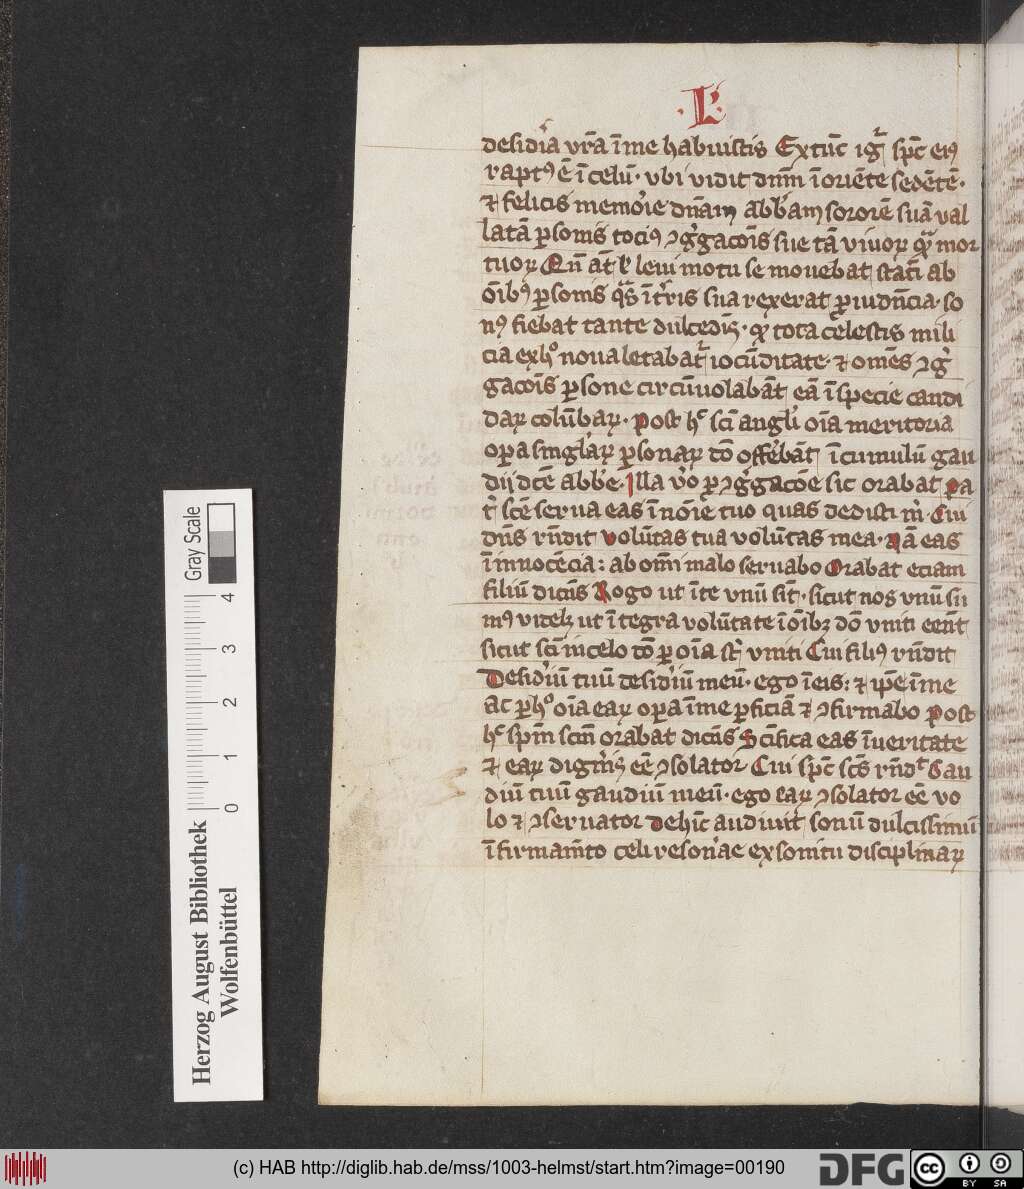 .L'.
desid'ia vr̄a ī me habuistis Extūc igr̄ sp̄c eiꝰ
raptꝰ ē ī celū· vbi vidit dn̄m ī oriēte sedētē·
⁊ felicis memorie dn̄am abb'am sororē suā val
latā ꝑsonis tociꝰ ꝯg̓gacōis sue tā viuoꝝ qᷓ mor
tuoꝝ Qn̄ āt ł leui motu se mouebat statī ab
ōibꝰ ꝑsonis qᷓs ī t'ris sua rexerat ꝓuidn̄cia· so
nꝰ fiebat tante dulcedīs· ꝙ tota celestis mili
cia ex hͦ noua letabat᷑ iocūditate· ⁊ omēs ꝯg̓
gacōis ꝑsone circūuolabāt eā ī specie candi
daꝝ colūbaꝝ· Post hͨ sc̄i angl'i oīa meritoria
oꝑa singl'aꝝ ꝑsonaꝝ dō offe'bāt ī cumulū gau
dii dc̄e abb'e· Illa v'o ꝓ ꝯg̓gacōe sic orabat Pa
t' sc̄e serua eas ī nōie tuo quas dedisti m'· Cui
dn̄s rn̄dit volūtas tua volūtas mea· Nā eas
ī innocēcia: ab omī malo seruabo Orabat eciam
filiū dicēs Rogo ut ī te vnū sīt· sicut nos vnū su
mꝰ videlꝫ ut ītegra volūtate ī ōibꝫ dō vniti eēnt
sicut sc̄i in celo dō ꝑ oīa st̄ vniti Cui filiꝰ rn̄dit
Desid'iū tuū desid'iū meū· ego ī eis: ⁊ ip̄e ī me
ac ꝑ hͦ oīa eaꝝ oꝑa ī me ꝑficiā ⁊ ꝯfirmabo Post
hͨ sp̄m sc̄m orabat dicēs Sc̄ifica eas ī ueritate
⁊ eaꝝ digneris eē ꝯsolator Cui sp̄c sc̄s rn̄dͭ Gau
diū tuū gaudiū meū· ego eaꝝ ꝯsolator eē vo
lo ⁊ ꝯseruator Dehīc audiuit sonū dulcissimū
ī firmam̄to celi resonare ex sonitu disciplinaꝝ
Herzog August Bibliothek
Wolfenbüttel
Gray Scale
0 1 2 3 4
(c) HAB http://diglib.hab.de/mss/1003-helmst/start.htm?image=00190
DFG
cc BY SA